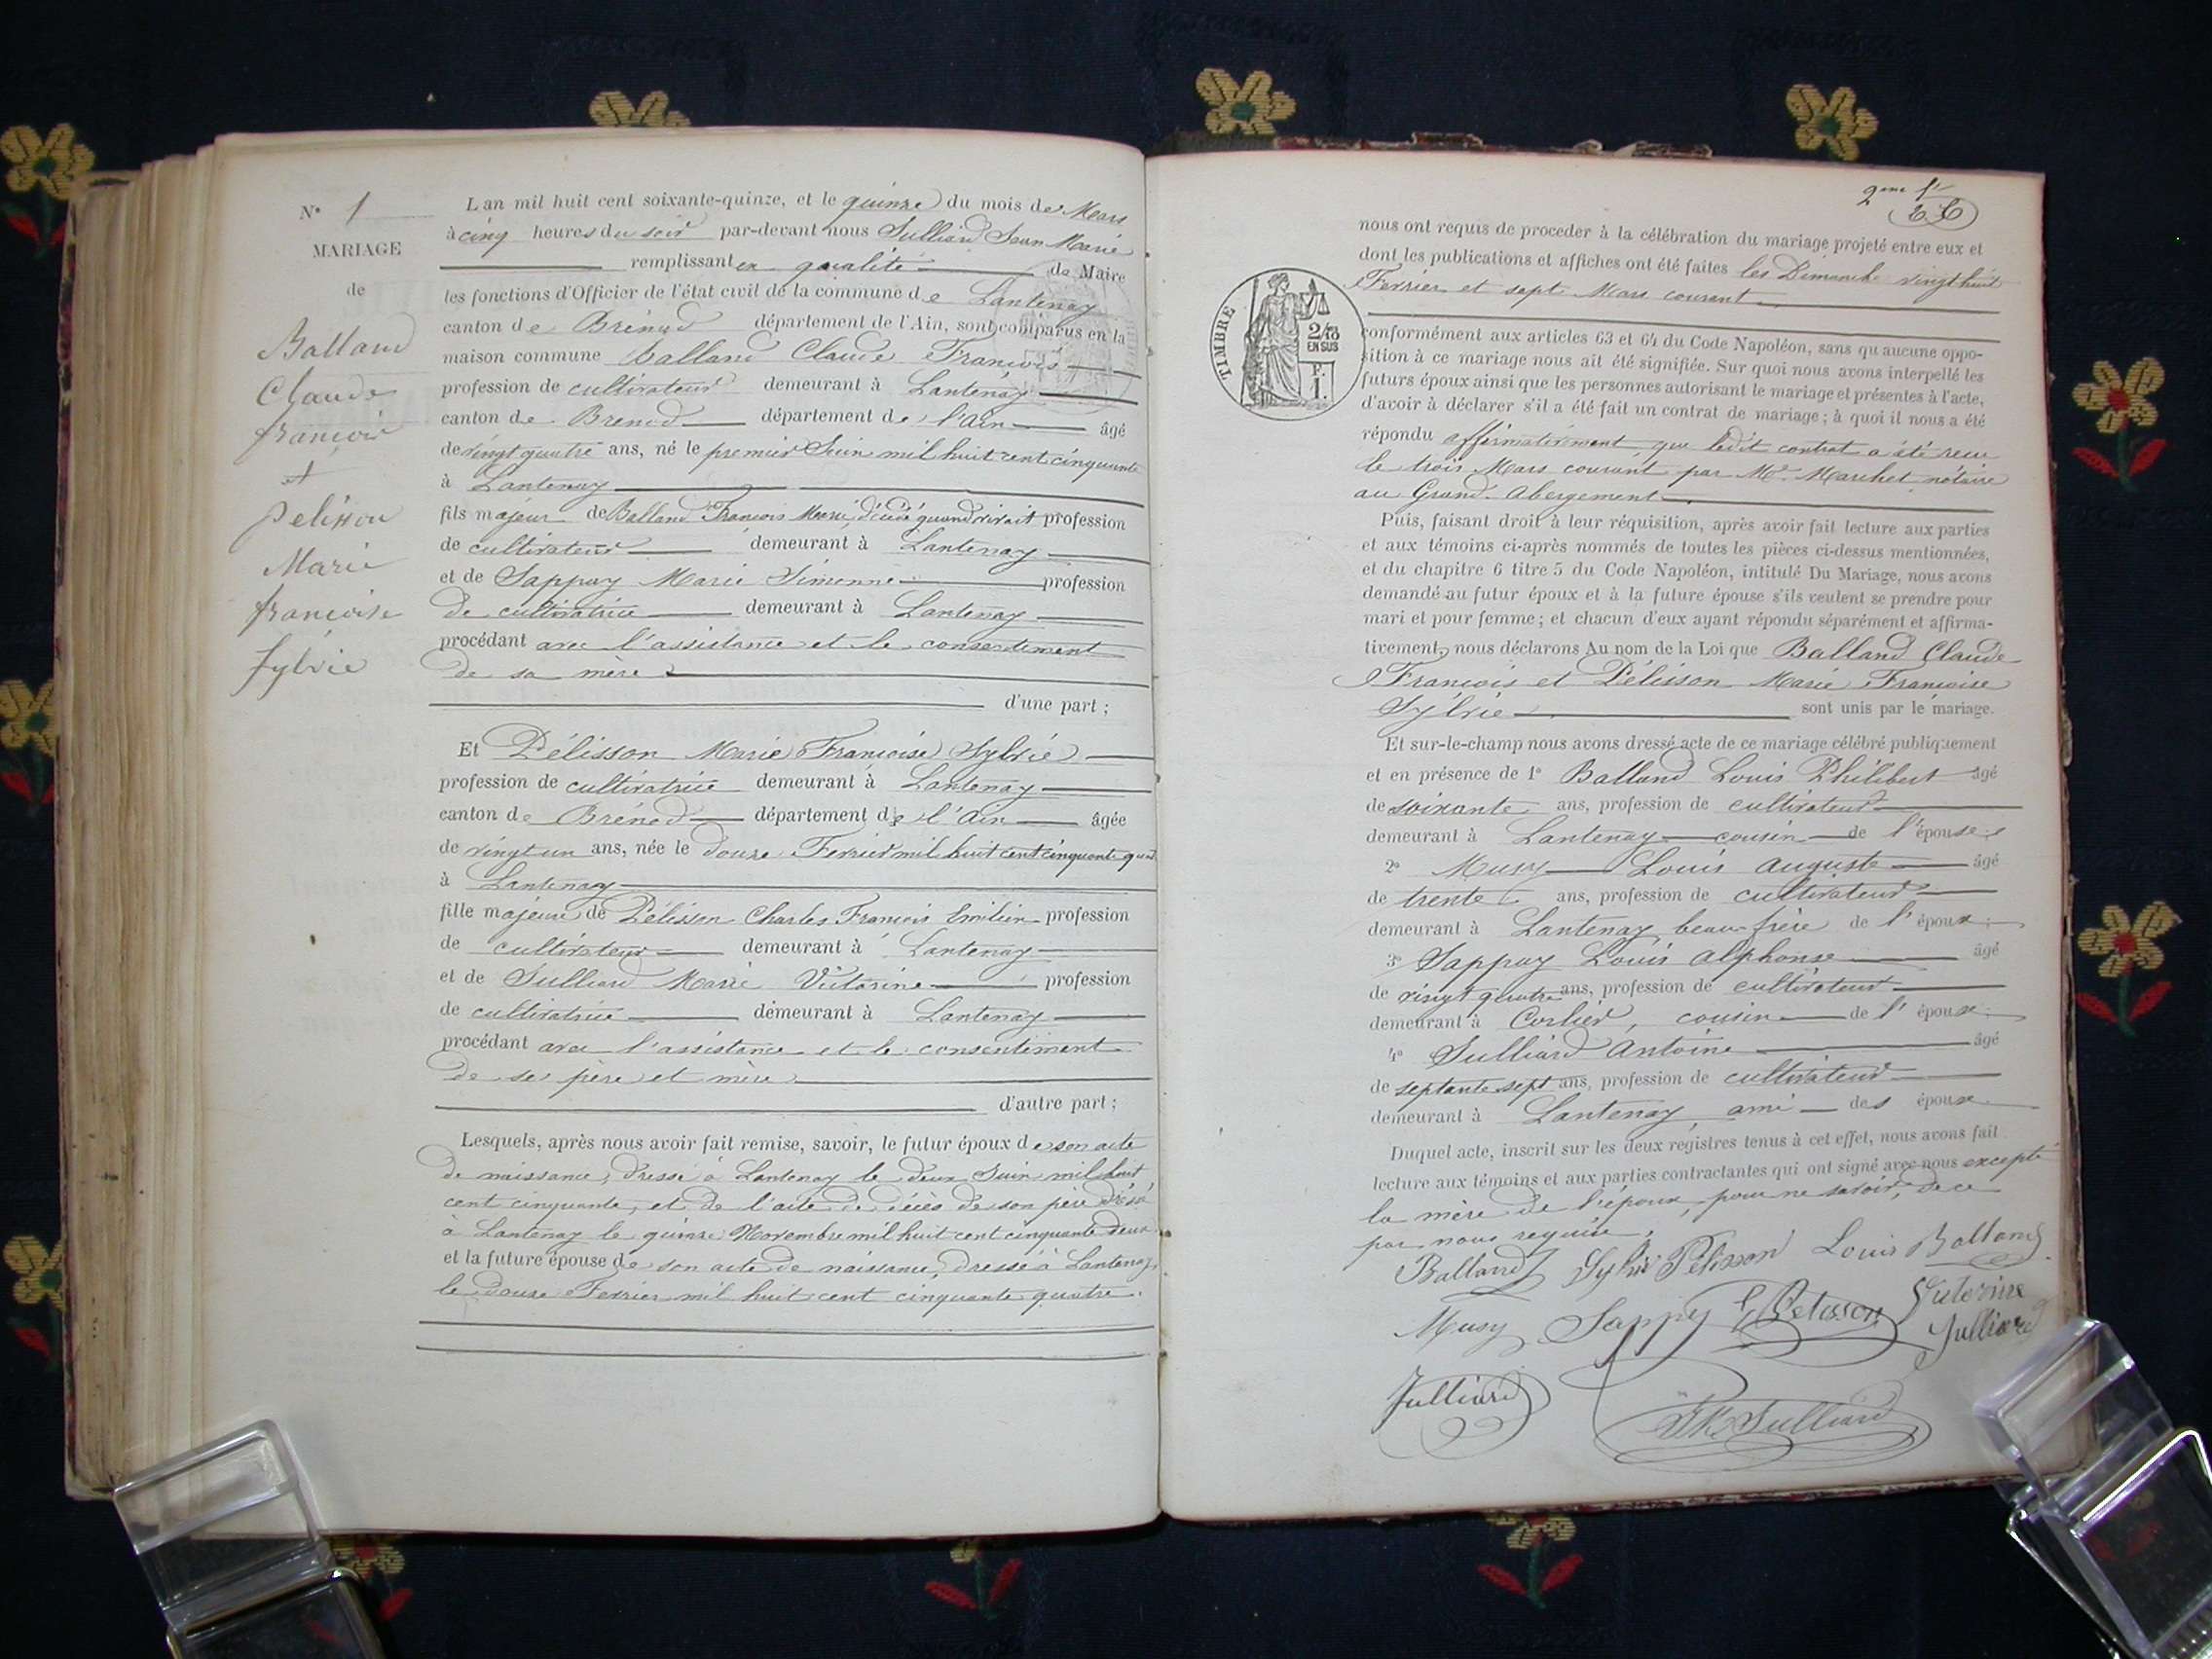 N° 1
MARIAGE
de
Balland
Claude
françois
et
Pelisson
Marie
françoise
Sylvie
L'an mil huit cent soixante-quinze, et le quinze du mois de Mars
à cinq heures du soir par-devant nous Julliard Jean Marie
remplissant en qualité de Maire
les fonctions d'Officier de l'état civil de la commune de Lantenay
canton de Brénod département de l'Ain, sont comparus en la
maison commune Balland Claude François
profession de cultivateur demeurant à Lantenay
canton de Brenod département de l'ain âgé
de vingt quatre ans, né le premier Juin mil huit cent cinquante
à Lantenay
fils majeur de Balland François Marie, décédé quand vivait profession
de cultivateur demeurant à Lantenay
et de Sappuy Marie Simonne profession
de cultivatrice demeurant à Lantenay
procédant avec l'assistance et le consentement
de sa mère
d'une part ;
Et Pélisson Marie Françoise Sylvie
profession de cultivatrice demeurant à Lantenay
canton de Brénod département de l'Ain âgée
de vingt un ans, née le douze Fevrier mil huit cent cinquante quat
à Lantenay
fille majeure de Pélisson Charles François Emilien profession
de cultivateur demeurant à Lantenay
et de Julliard Marie Victorine profession
de cultivatrice demeurant à Lantenay
procédant avec l'assistance et le consentement
de ses père et mère
d'autre part ;
Lesquels, après nous avoir fait remise, savoir, le futur époux de son acte
de naissance, dressé à Lantenay le deux Juin mil huit
cent cinquante, et de l'acte de décès de son père dressé
à Lantenay le quinze Novembre mil huit cent cinquante deux
et la future épouse de son acte de naissance, dressé à Lantenay
le douze Fevrier mil huit cent cinquante quatre.
2eme
nous ont requis de procéder à la célébration du mariage projeté entre eux et
dont les publications et affiches ont été faites les Dimanche vingt huit
Fevrier et sept Mars courant
TIMBRE
2/10
EN SUS
F.
1.
conformément aux articles 63 et 64 du Code Napoléon, sans qu'aucune oppo-
sition à ce mariage nous ait été signifiée. Sur quoi nous avons interpellé les
futurs époux ainsi que les personnes autorisant le mariage et présentes à l'acte,
d'avoir à déclarer s'il a été fait un contrat de mariage ; à quoi il nous a été
répondu affirmativement, que ledit contrat a été recu
le trois Mars courant par Me. Marchet notaire
au Grand-Abergement
Puis, faisant droit à leur réquisition, après avoir fait lecture aux parties
et aux témoins ci-après nommés de toutes les pièces ci-dessus mentionnées,
et du chapitre 6 titre 5 du Code Napoléon, intitulé Du Mariage, nous avons
demandé au futur époux et à la future épouse s'ils veulent se prendre pour
mari et pour femme ; et chacun d'eux ayant répondu séparément et affirma-
tivement, nous déclarons Au nom de la Loi que Balland Claude
François et Pélisson Marie Françoise
Sylvie sont unis par le mariage.
Et sur-le-champ nous avons dressé acte de ce mariage célébré publiquement
et en présence de 1° Balland Louis Philibert âgé
de soixante ans, profession de cultivateur
demeurant à Lantenay cousin de l'épouse
2° Musy Louis Auguste âgé
de trente ans, profession de cultivateur
demeurant à Lantenay beau-frère de l'époux ;
3° Sappuy Louis Alphonse âgé
de vingt quatre ans, profession de cultivateur
demeurant à Corlier, cousin de l'époux
4° Julliard Antoine âgé
de septante sept ans, profession de cultivateur
demeurant à Lantenay, ami des époux
Duquel acte, inscrit sur les deux régistres tenus à cet effet, nous avons fait
lecture aux témoins et aux parties contractantes qui ont signé avec nous excepté
la mère de l'époux, pour ne savoir, de ce
par nous requise.
Balland Sylvie Pélisson Louis Balland
Musy Sappuy Pelisson Victorine
Julliard
Julliard
JM Julliard